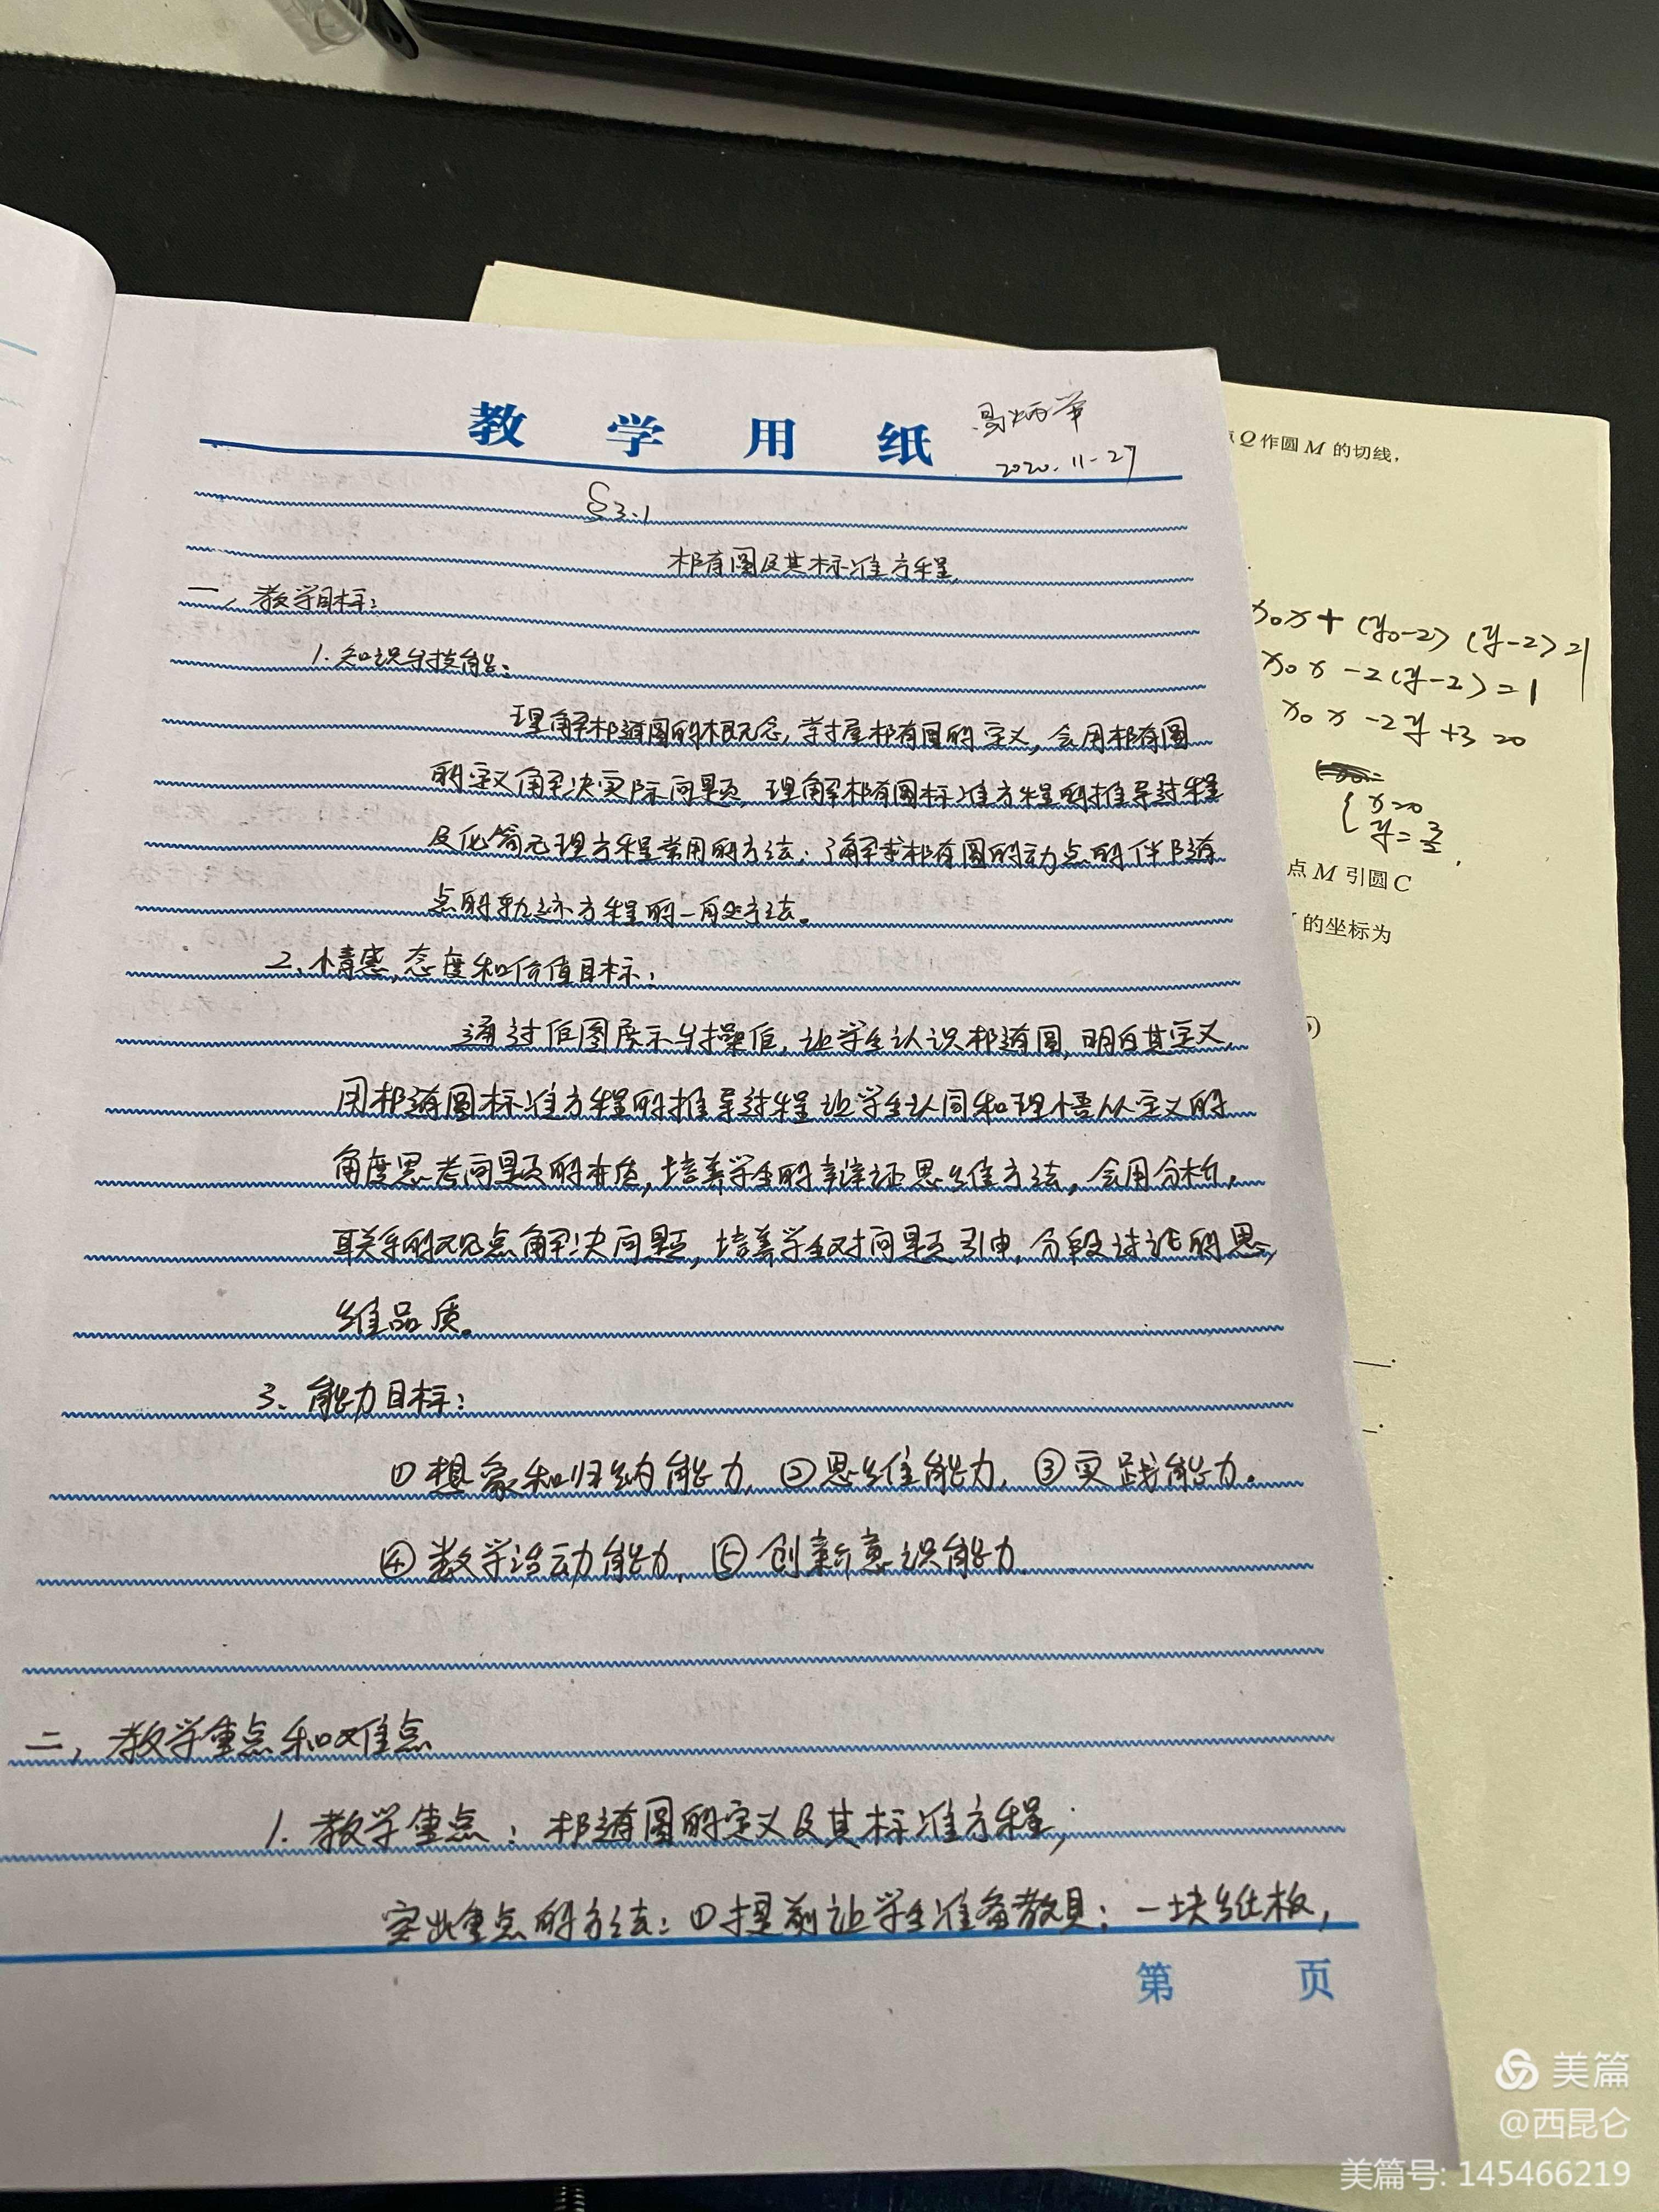 教学用纸
2020.11-27
§3.1
椭圆及其标准方程
一、教学目标:
1.知识与技能:
理解椭圆的概念,掌握椭圆的定义,会用椭圆
的定义解决实际问题,理解椭圆标准方程的推导过程
及化简无理方程常用的方法;了解求椭圆的动点的伴随
点的轨迹方程的一般方法。
2、情感,态度和价值目标:
通过作图展示与操作,让学生认识椭圆,明白其定义,
用椭圆标准方程的推导过程让学生认同和理悟从定义的
角度思考问题的本质,培养学生的辩证思维方法,会用分析,
联系的观点解决问题,培养学生对问题引申,分段讨论的思
维品质。
3、能力目标:
①想象和归纳能力,②思维能力,③实践能力。
④数学活动能力,⑤创新意识能力
二、教学重点和难点
1.教学重点:椭圆的定义及其标准方程;
突出重点的方法:①提前让学生准备教具:一块纸板,
第 页
Q作圆M的切线,
x₀x+(y₀-2)(y-2)=1
x₀x-2(y-2)=1
x₀x-2y+3=0
{x=0
y=3/2,
点M引圆C
的坐标为
美篇
@西昆仑
美篇号: 145466219